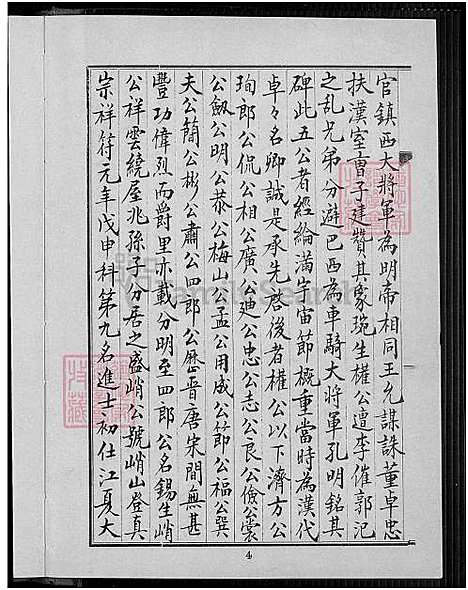 官鎮西大將軍為明帝相同王允謀誅董卓忠
扶漢室曹子建贊其象琬生權公遭李傕郭汜
之乱兄弟分避巴西為車騎大將軍孔明銘其
碑此五公者經綸滿宇宙節概重當時為漢代
卓々名卿誠是承先啓後者權公以下濟方公
珣郎公侃公相公廣公迪公忠公志公良公儉公裳
公劔公明公恭公梅山公孟公用成公節公福公巽
夫公簡公彬公肅公四郎公歷晋唐宋間無甚
豐功偉烈而爵里亦載分明至四郎公名錫生峭
公祥雲繞屋兆孫子分居之盛峭公號峭山登真
宗祥符元年戊申科第九名進士初仕江夏大
4
FamilySearch